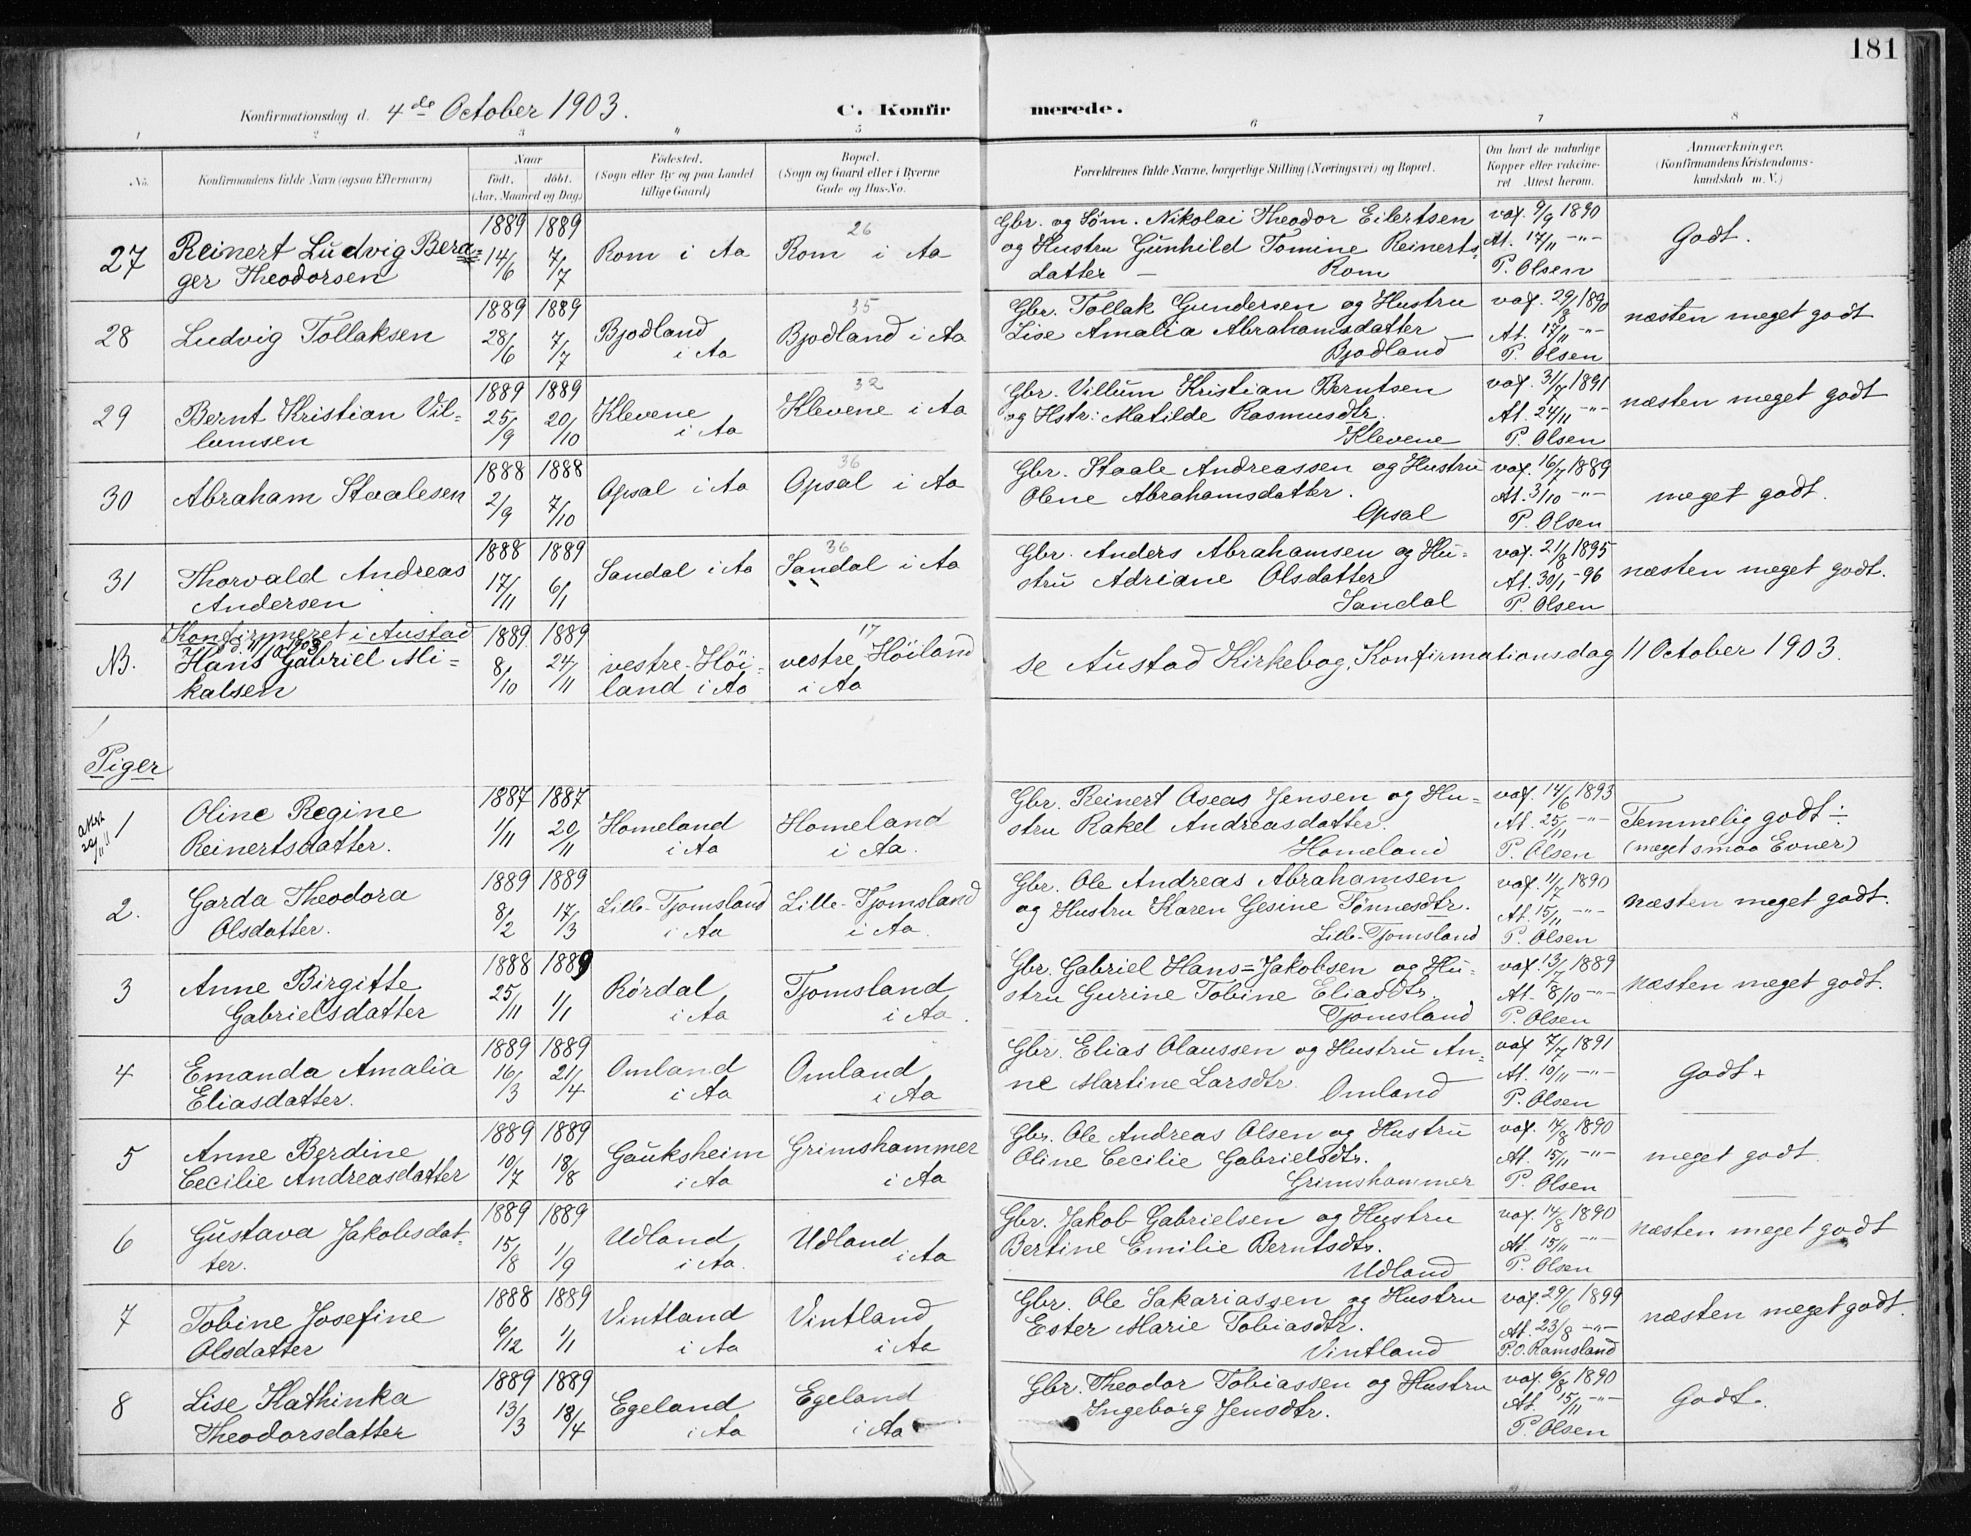 181
Konfirmationsdag d. 4de October 1903. C. Konfirmerede.
1 2 3 4 5 6 7 8
No. Konfirmandens fulde Navn (ogsaa Efternavn) Naar født, døbt. (Aar, Maaned og Dag) Fødested. (Sogn eller By og paa Landet tillige Gaard) Bopæl. (Sogn og Gaard eller i Byerne Gade og Hus-No. Forældrenes fulde Navne, borgerlige Stilling (Næringsvei) og Bopæl. Om havt de naturlige Kopper eller vakcineret Attest herom. Anmærkninger. (Konfirmandens Kristendomskundskab m. V.)
27 Reinert Ludvig Berager Theodorsen 1889 14/6 1889 7/7 Rom i Aa 26 Rom i Aa Gbr. og Søm. Nikolai Theodor Eilertsen
og Hustru Gunhild Tomine Reinerts-
datter — Rom vax. 9/9 1890 At. 17/11 -"- P. Olsen Godt.
28 Ludvig Tollaksen 1889 28/6 1889 7/7 Bjodland i Aa 35 Bjodland i Aa Gbr. Tollak Gundersen og Hustru
Lise Amalia Abrahamsdatter —
Bjodland vax. 29/8 1890 At. 17/11 -"- P. Olsen næsten meget godt
29 Bernt Kristian Vil-
lumsen 1889 25/9 1889 20/10 Klevene i Aa 32 Klevene i Aa Gbr. Villum Kristian Berntsen
og Hstr: Matilde Rasmusdtr.
Klevene vax. 31/7 1891 At. 24/11 -"- P. Olsen næsten meget godt
30 Abraham Staalesen 1888 2/9 1888 7/10 Opsal i Aa 36 Opsal i Aa Gbr. Staale Andreassen og Hustru
Olene Abrahamsdatter.
Opsal vax. 16/7 1889 At. 3/10 -"- P. Olsen meget godt.
31 Thorvald Andreas
Andersen 1888 17/11 1889 6/1 Sandal i Aa 36 Sandal i Aa Gbr. Anders Abrahamsen og Hu-
stru Adriane Olsdatter
Sandal vax. 21/8 1895 At. 30/1 -96 P. Olsen næsten meget godt.
Konfirmeret i Austad
d. 11/10 1903
NB. Hans Gabriel Mi-
kalsen 1889 8/10 1889 24/11 vestre-Höi-
land i Aa 17 vestre Höiland
i Aa se Austad Kirkebog, Konfirmationsdag 11 October 1903.
Piger
1 Oline Regine
Reinertsdatter. 1887 1/11 1887 20/11 Homeland
i Aa Homeland
i Aa. Gbr. Reinert Oseas Jensen og Hu-
stru Rakel Andreasdatter.
Homeland vax. 14/6 1893 At. 25/11 -"- P. Olsen Temmelig godt ÷
(meget smaa Evner)
2. Garda Theodora
Olsdatter. 1889 8/2 1889 17/3 Lille-Tjomsland
i Aa Lille-Tjomsland
i Aa. Gbr. Ole Andreas Abrahamsen
og Hustru Karen Gesine Tönnesdtr.
Lille-Tjomsland vax. 11/7 1890 At. 15/11 -"- P. Olsen næsten meget godt.
3 Anne Birgitte
Gabrielsdatter 1888 25/11 1889 1/1 Rördal
i Aa Tjomsland
i Aa. Gbr. Gabriel Hans=Jakobsen og Hu-
stru Gurine Tobine Eliasdtr.
Tjomsland vax. 13/7 1889 At. 8/10 -"- P. Olsen næsten meget godt.
4 Emanda Amalia
Eliasdatter. 1889 16/3 1889 21/4 Omland
i Aa Omland
i Aa Gbr. Elias Olaussen og Hustru An-
ne Martine Larsdtr.
Omland vax 7/7 1891 At. 10/11 -"- P. Olsen Godt +
5 Anne Berdine
Cecilie Andreasdatter 1889 10/7 1889 18/8 Gauksheim
i Aa Grimshammer
i Aa Gbr. Ole Andreas Olsen og Hustru
Oline Cecilie Gabrielsdtr.
Grimshammer vax. 14/8 1890 At. 15/11 -"- P. Olsen meget godt.
6 Gustava Jakobsdat-
ter. 1889 15/8 1889 1/9 Udland
i Aa. Udland
i Aa Gbr. Jakob Gabrielsen og Hustru
Bertine Emilie Berntsdtr.
Udland vax. 14/8 1890 At. 15/11 -"- P. Olsen næsten meget godt
7 Tobine Josefine
Olsdatter 1888 6/12 1889 1/1 Vintland
i Aa Vintland
i Aa Gbr. Ole Sakariassen og Hustru
Ester Marie Tobiasdtr.
Vintland vax. 29/6 1899 At. 23/8 -"- P.O. Ramsland næsten meget godt.
8 Lise Kathinka
Theodorsdatter 1889 13/3 1889 18/4 Egeland
i Aa Egeland
i Aa Gbr. Theodor Tobiassen og Hustru
Ingeborg Jensdtr. vax. 6/8 1890 At. 15/11 -"- P. Olsen Godt.